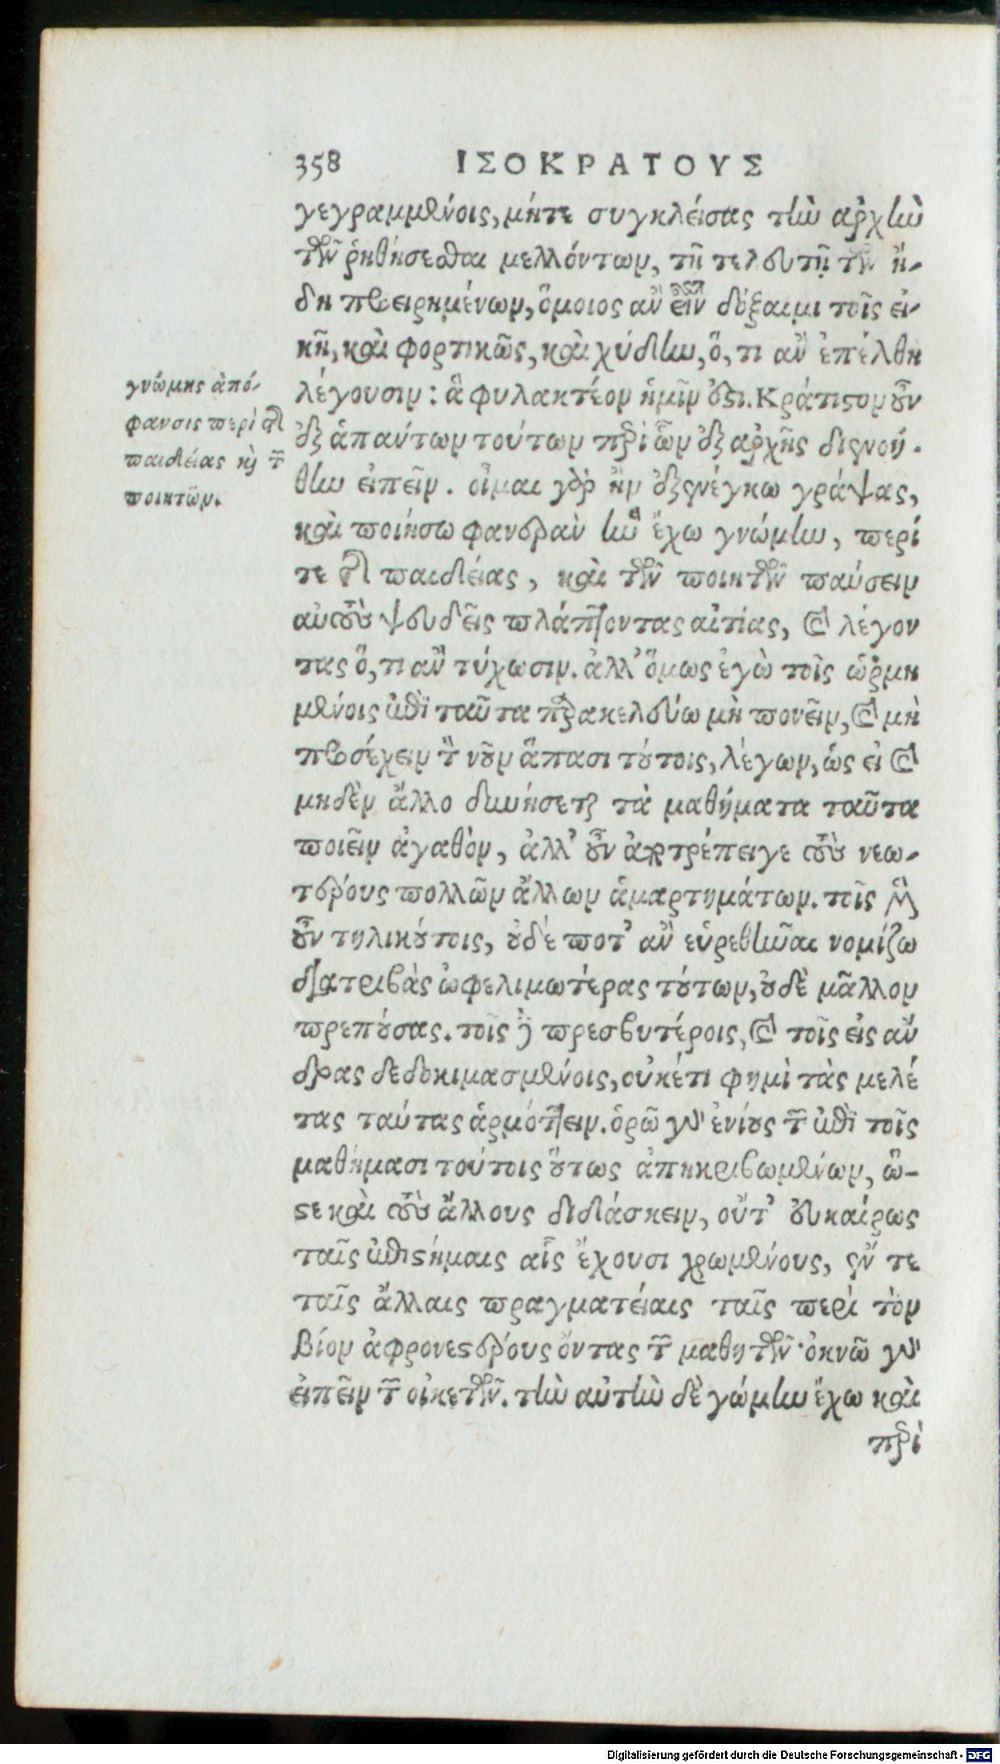 358 ΙΣΟΚΡΑΤΟΥΣ
γεγραμμένοις, μήτε συγκλείσας τὴν ἀρχὴν
τῶν ῥηθήσεσθαι μελλόντων, τῇ τελευτῇ τῶν ἤ-
δη προειρημένων, ὅμοιος ἂν εἶν δόξαιμι τοῖς εἰ-
κῆ, καὶ φορτικῶς, καὶ χύδην, ὅ, τι ἂν ἐπέλθη
λέγουσιν: ἃ φυλακτέον ἡμῖν ἐστι. Κράτιστον οὖν
ἐξ ἁπάντων τούτων περὶ ὧν ἐξ ἀρχῆς διενοή.
θην εἰπεῖν. οἶμαι γὰρ ἢν ἐξενέγκω γράψας,
καὶ ποιήσω φανερὰν ἣν ἔχω γνώμην, περί
τε τῆς παιδείας, καὶ τῶν ποιητῶν παύσειν
αὐτοὺς ψευδεῖς πλάττοντας αἰτίας, καὶ λέγον
τας ὅ, τι ἂν τύχωσιν. ἀλλ' ὅμως ἐγὼ τοῖς ὡρμη
μένοις ἐπὶ ταῦτα παρακελεύω μὴ πονεῖν, καὶ μὴ
προσέχειν τὸν νοῦν ἅπασι τούτοις, λέγων, ὡς εἰ καὶ
μηδὲν ἄλλο δυνήσεται τὰ μαθήματα ταῦτα
ποιεῖν ἀγαθὸν, ἀλλ' οὖν ἀποτρέπειγε τοὺς νεω-
τέρους πολλῶν ἄλλων ἁμαρτημάτων. τοῖς μὲν
οὖν τηλικούτοις, οὐδέ ποτ' ἂν εὑρεθῆναι νομίζω
διατριβὰς ὠφελιμωτέρας τούτων, οὐδὲ μᾶλλον
πρεπούσας. τοῖς δὲ πρεσβυτέροις, καὶ τοῖς εἰς ἄν
δρας δεδοκιμασμένοις, οὐκέτι φημὶ τὰς μελέ
τας ταύτας ἁρμόττειν. ὁρῶ γὰρ ἐνίους τῶν ἐπὶ τοῖς
μαθήμασι τούτοις οὕτως ἀπηκριβωμένων, ὥ-
στε καὶ τοὺς ἄλλους διδάσκειν, οὔτ' εὐκαίρως
ταῖς ἐπιστήμαις αἷς ἔχουσι χρωμένους, ἔν τε
ταῖς ἄλλαις πραγματείαις ταῖς περὶ τὸν
βίον ἀφρονεστέρους ὄντας τῶν μαθητῶν· ὀκνῶ γὰρ
εἰπεῖν τῶν οἰκετῶν. τὴν αὐτὴν δὲ γώμην ἔχω καὶ
περὶ
γνώμης ἀπό-
φανσις περὶ τῆς
παιδείας καὶ τῶν
ποιητῶν.
Digitalisierung gefördert durch die Deutsche Forschungsgemeinschaft - DFG